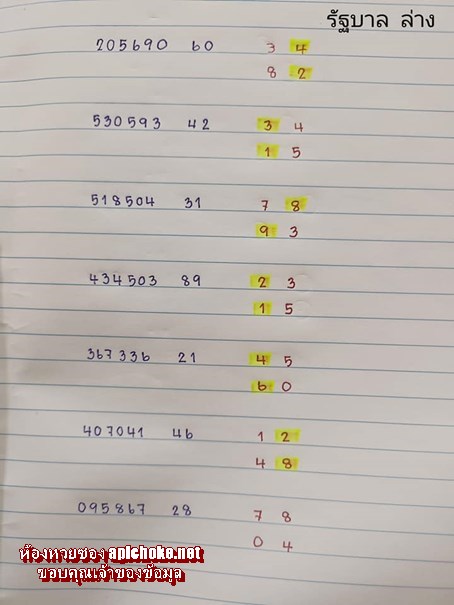 รัฐบาล ล่าง
205690 60 3 4
8 2
530593 42 3 4
1 5
518504 31 7 8
9 3
434503 89 2 3
1 5
367336 21 4 5
6 0
407041 46 1 2
4 8
095867 28 7 8
0 4
ห้องหวยซอง apichoke.net
ขอบคุณเจ้าของข้อมูล